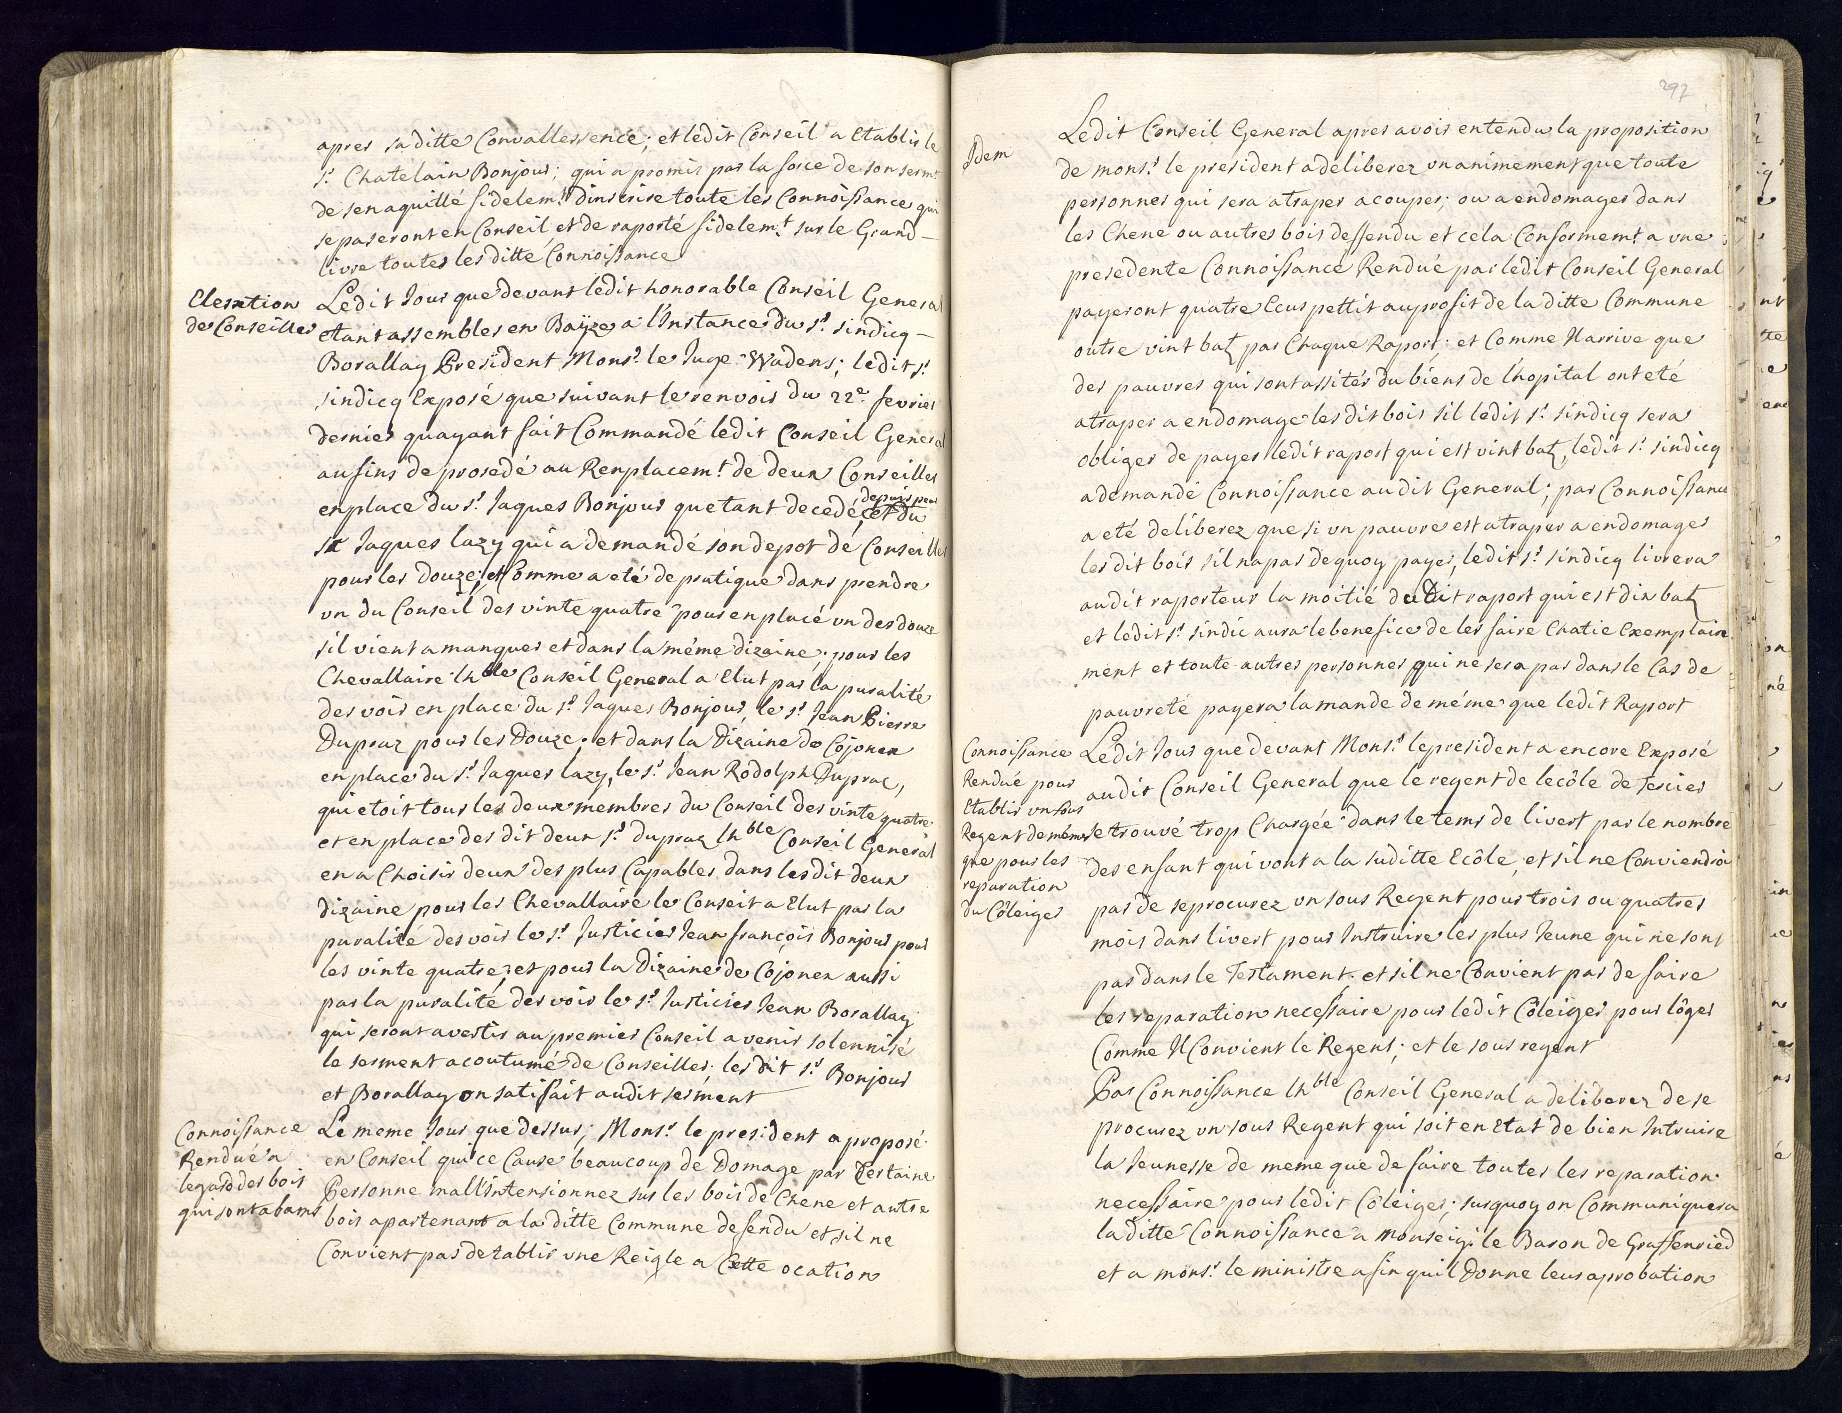 apres sa ditte Convallessence; et ledit Conseil a Etablis le
sr. Chatelain Bonjour; qui a promis par la force de son sermt.
de senaquillé fidelemt. dinscrire toute les Connoissance qui
se paseront en Conseil et de raporté fidelemt. sur le Grand
livre toutes les ditte Connoissance
Elexation
de Conseiller
Ledit Jour que devant ledit honorable Conseil General
etant assembles en Baÿze a l'Instance du sr. sindicq
Borallay President Monsr. le Juge Wadens; ledit sr.
sindicq Exposé que suivant le renvois du 22e. fevrier
dernier quayant fait Commandé ledit Conseil General
aufins de prosedé au Renplacemt. de deux Conseiller
enplace du sr. Jaques Bonjour quetant decedé, depuis peu et du
sr Jaques lazy qui a demandé son depot de Conseiller
pour les Douze; et Comme a eté de pratique dans prendre
un du Conseil des vinte quatre pour en placé un des douze
s'il vient a manquer et dans la méme dizaine; pour les
Chevallaire lhble Conseil General a Elut par la puralité
des vois en place du sr. Jaques Bonjour, le sr. Jean Pierre
Dupraz pour les Douze; et dans la Dizaine de Cojonex
en place du sr. Jaques lazy, le sr. Jean Rodolph Duprac,
qui etoit tous les deux membres du Conseil des vinte quatre
et en place des dit deux srs. dupraz lhble Conseil General
en a Choisir deux des plus Capables dans les dit deux
dizaine pour les Chevallaire le Conseit a Elut par la
puralité des vois le sr. Justicier Jean françois Bonjour pour
les vinte quatre; et pour la Dizaine de Cojonex aussi
par la puralité des vois le sr. Justicier Jean Borallay
qui seront avertis au premier Conseil a venir solennisé
le serment acoutumé de Conseiller; les dit srs. Bonjour
et Borallay on satisfait audit serment
Connoissance
Rendué a
legard des bois
qui sont a bams
Le meme Jour que dessus; Monsr. le president a proposé
en Conseil qui ce Cause beaucoup de Domage par Certaine
Personne mall'intensionnez sur les bois de Chene et autre
bois apartenant a la ditte Commune defendu et sil ne
Convient pas detablir une Reigle a Cette ocation
297
Idem
Ledit Conseil General apres avoir entendu la proposition
de monsr. le president a deliberez unanimement que toute
personnes qui sera atraper a couper; ou a endomager dans
les Chene ou autres bois deffendu et cela Conformemt. a une
presedente Connoissance Rendué par ledit Conseil General
payeront quatre Ecus pettit au profit de la ditte Commune
outre vint batz par Chaque Raport; et Comme Il arrive que
des pauvres qui sont assités du biens de l'hopital ont eté
atraper a endomage les dit bois sil ledit sr. sindicq sera
obliger de payer ledit raport qui est vint batz, ledit sr. sindicq
a demandé Connoissance audit General; par Connoissance
a eté deliberez que si un pauvre est atraper a endomager
les dit bois sil na pas de quoy payer, ledit sr. sindicq livrera
audit raporteur la moitié dudit raport qui est dix batz
et ledit sr. sindic aura le benefice de les faire Chatie Exemplaire
ment et toute autres personnes qui ne sera pas dans le Cas de
pauvreté payera lamande de méme que ledit Raport
Connoissance
Rendué pour
Etablir un sous
Regent de méme
que pour les
reparation
du Côleige
Ledit Jour que devant Monsr. le president a encore Exposé
audit Conseil General que le regent de lecôle de fercier
se trouvé trop Chargée dans le tems de livert par le nombre
des enfant qui vont a la suditte Ecôle, et sil ne Conviendroi
pas de se procurez un sous Regent pour trois ou quatres
mois dans livert pour Instruire les plus Jeune qui ne sont
pas dans le Testament, et sil ne Convient pas de faire
les reparation necessaire pour ledit Côleiges pour lôger
Comme Il Convient le Regent; et le sous regent
Par Connoissance lhble Conseil General a deliberez de se
procurez un sous Regent qui soit en Etat de bien Intruire
la Jeunesse de meme que de faire toutes les reparation
necessaire pour ledit Côleiges; surquoy on Communiquera
la ditte Connoissance a monseigr le Baron de Graffenried
et a monsr. le ministre afin quil Donne leur aprobation